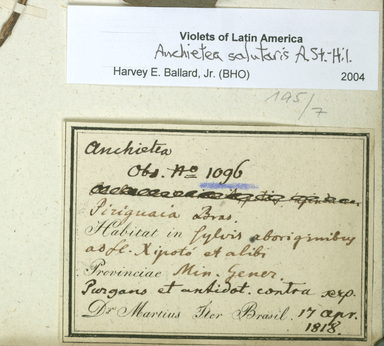 Violets of Latin America
Anchietea salutaris A.St.-Hil.
Harvey E. Ballard, Jr. (BHO) 2004
195/7
Anchietea
Obs. No 1096
Piriguaia
Habitat in sylvis aboriginibus
ad fl. Xipotó et alibi
Provinciae Min. Gener.
Purgans et antidot. contra
Dr Martius Iter Brasil. 17 Apr.
1818.